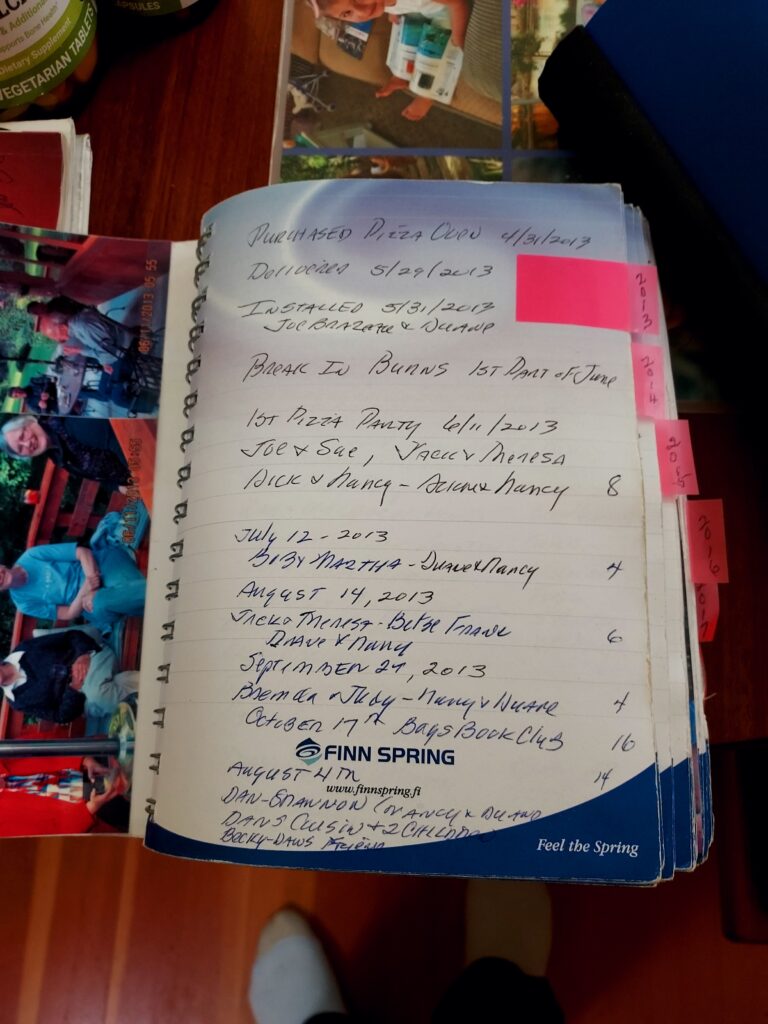 & Additional
Supports Bone Health
Dietary Supplement
VEGETARIAN TABLETS
CAPSULES
06/11/2013 05:55
PURCHASED PIZZA OVEN 4/31/2013
DELIVERED 5/29/2013
INSTALLED 5/31/2013
JOE & DUANE
BREAK IN BURNS 1ST PART OF June
1ST PIZZA PARTY 6/11/2013
JOE & Sue, JACK & THERESA
DICK & Nancy - & Nancy 8
July 12 - 2013
BOB & MARTHA - Duane & Nancy 4
AUGUST 14, 2013
JACK & THERESA - FRANK 6
DUANE & Nancy
SEPTEMBER 27, 2013
BRENDA & - Nancy & DUANE 4
OCTOBER 17th Boys Book Club 16
FINN SPRING
AUGUST 4TH 14
www.finnspring.fi
DAN - SHANNON (NANCY & DUANE
DANS COUSIN + 2 CHILDREN
BECKY - DAWS FRIEND
Feel the Spring
2013
2014
2015
2016
2017